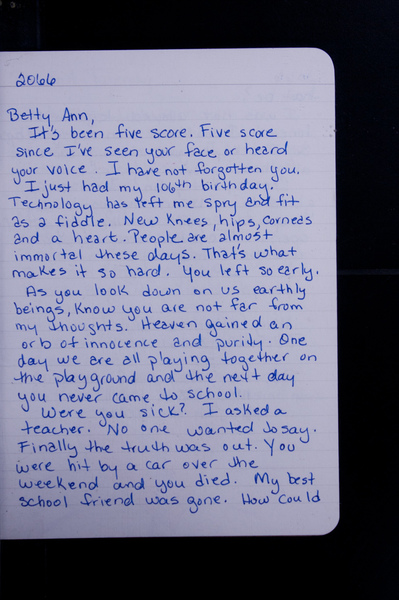 2066
Betty Ann,
It's been five score. Five score
since I've seen your face or heard
your voice. I have not forgotten you.
I just had my 106th birthday.
Technology has left me spry and fit
as a fiddle. New knees, hips, corneas
and a heart. People are almost
immortal these days. That's what
makes it so hard. You left so early.
As you look down on us earthly
beings, know you are not far from
my thoughts. Heaven gained an
orb of innocence and purity. One
day we are all playing together on
the playground and the next day
you never came to school.
Were you sick? I asked a
teacher. No one wanted to say.
Finally the truth was out. You
were hit by a car over the
weekend and you died. My best
school friend was gone. How could